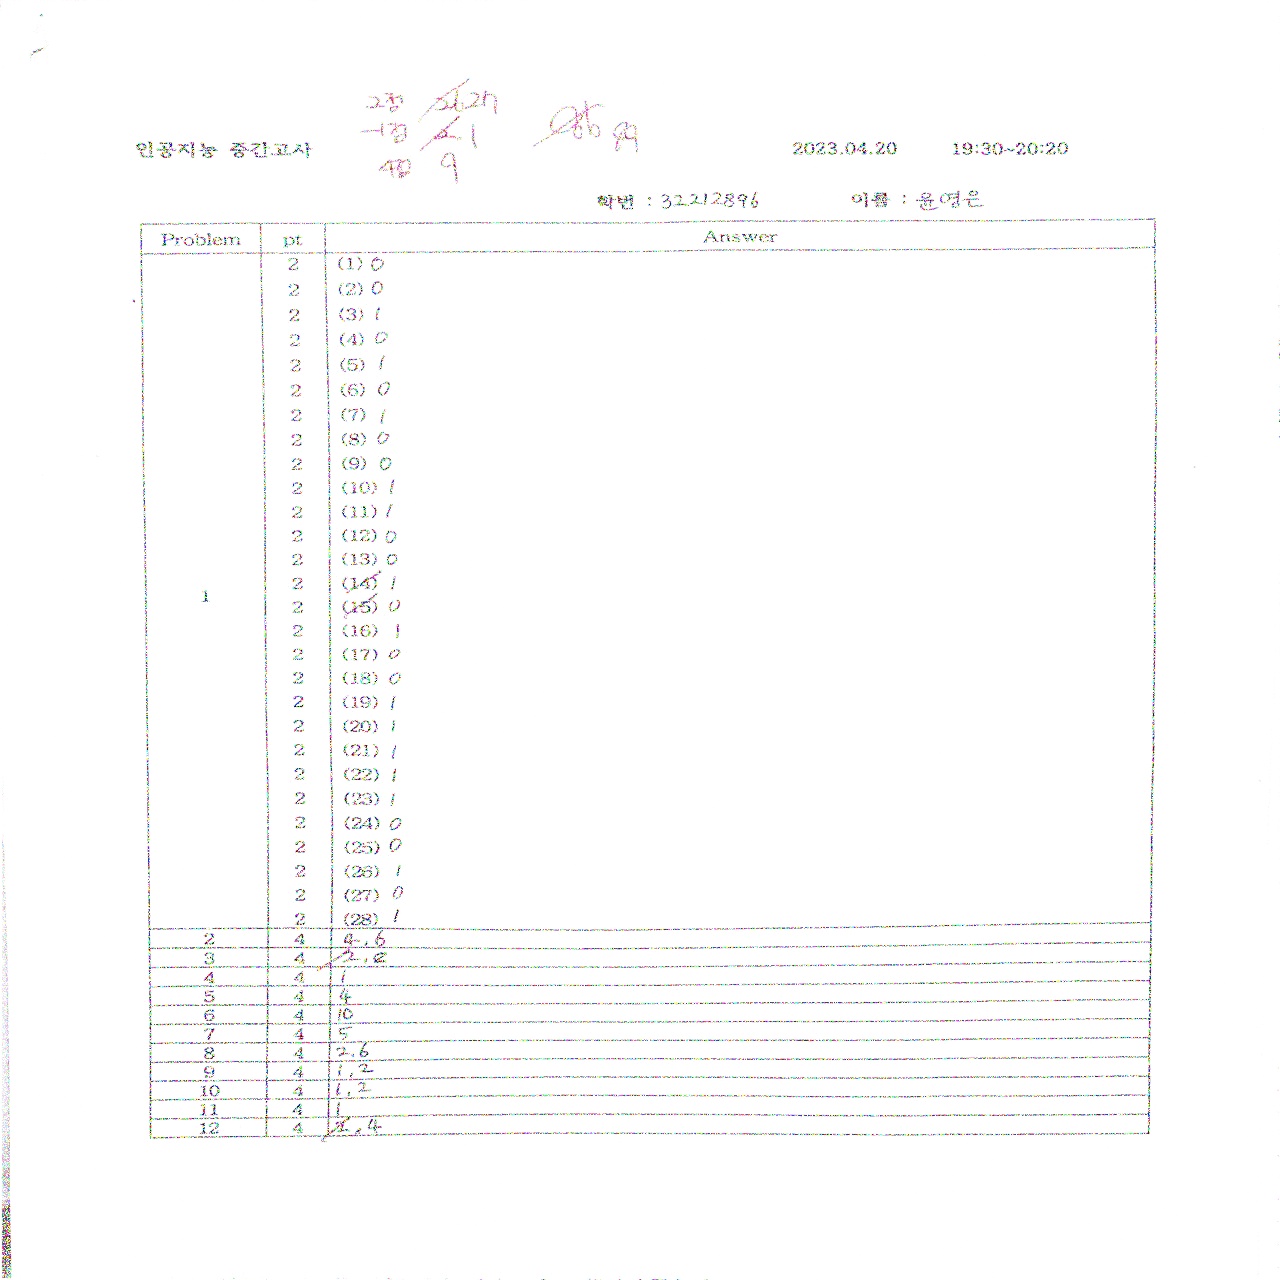 2점 27
-1점 1
4점 9
89
인공지능 중간고사 2023.04.20 19:30~20:20
학번 : 32212896 이름 : 윤영은
Problem pt Answer
2 (1) 0
2 (2) 0
2 (3) 1
2 (4) 0
2 (5) 1
2 (6) 0
2 (7) 1
2 (8) 0
2 (9) 0
2 (10) 1
2 (11) 1
2 (12) 0
2 (13) 0
2 (14) 1
1
2 (15) 0
2 (16) 1
2 (17) 0
2 (18) 0
2 (19) 1
2 (20) 1
2 (21) 1
2 (22) 1
2 (23) 1
2 (24) 0
2 (25) 0
2 (26) 1
2 (27) 0
2 (28) 1
2 4 4, 6
3 4 2, 8
4 4 1
5 4 4
6 4 10
7 4 5
8 4 2, 6
9 4 1, 2
10 4 1, 2
11 4 1
12 4 2, 4